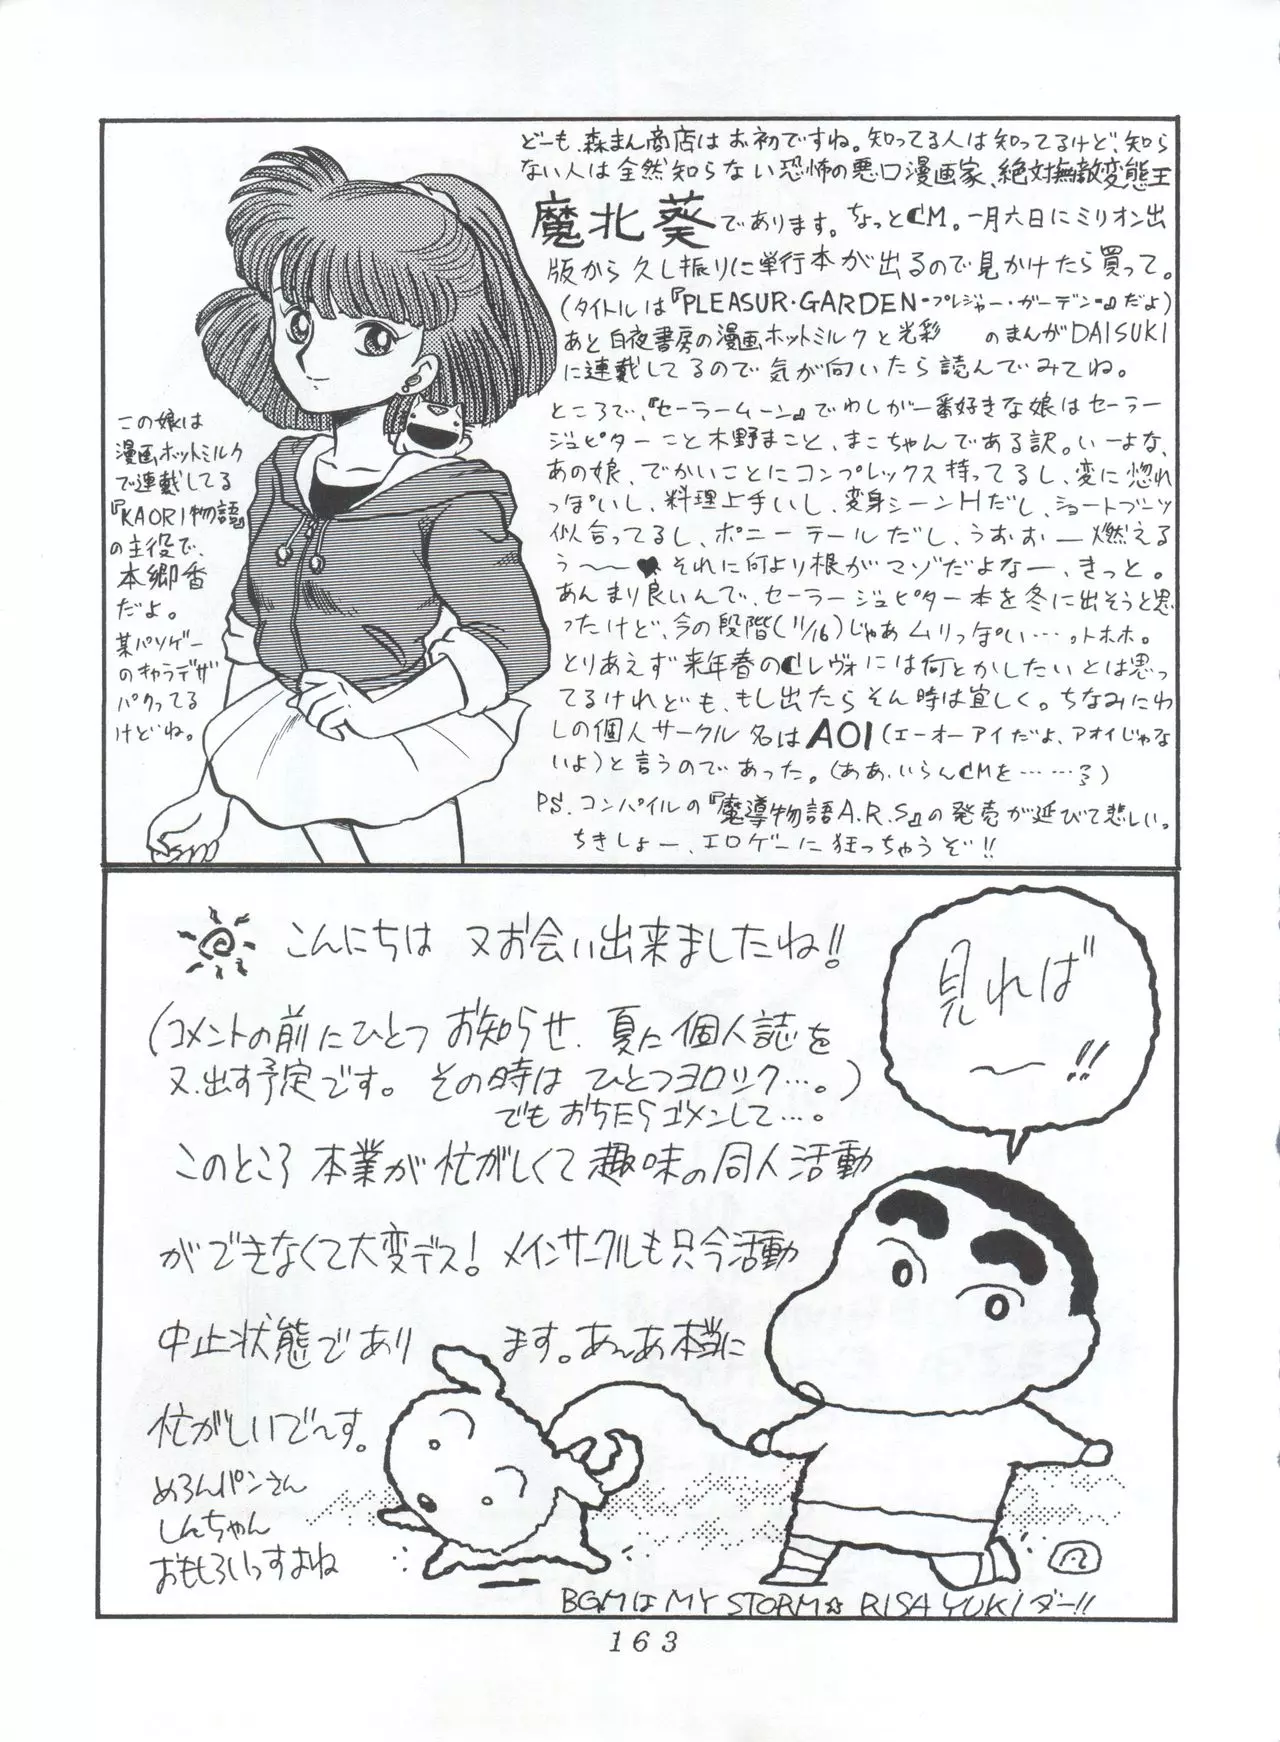 どーも、森まん商店はお初ですね。知ってる人は知ってるけど、知ら
ない人は全然知らない恐怖の悪口漫画家、絶対無敵変態王
魔北葵であります。ちょっとCM。一月六日にミリオン出
版から久し振りに単行本が出るので見かけたら買って。
(タイトルは『PLEASUR・GARDEN-プレジャー・ガーデン-』だよ)
あと白夜書房の漫画ホットミルクと光彩　のまんがDAISUKI
に連載してるので気が向いたら読んでみてね。
ところで、『セーラームーン』でわしが一番好きな娘はセーラー
ジュピターこと木野まこと、まこちゃんである訳。いーよな、
あの娘、でかいことにコンプレックス持ってるし、変に惚れ
っぽいし、料理上手いし、変身シーンHだし、ショートブーツ
似合ってるし、ポニーテールだし、うおぉぉー燃える
う〜〜♥それに何より根がマゾだよなー、きっと。
あんまり良いんで、セーラージュピター本を冬に出そうと思
ったけど、今の段階(11/16)じゃあムリっぽい…。トホホ。
とりあえず来年春のCレヴォには何とかしたいとは思っ
てるけれども、もし出たらそん時は宜しく。ちなみにわ
しの個人サークル名はAOI(エーオーアイだよ、アオイじゃな
いよ)と言うのであった。(ああ、いらんCMを……る)
PS.コンパイルの『魔導物語A.R.S』の発売が延びて悲しいっ
ちきしょー、エロゲーに狂っちゃうぞ!!
この娘は
漫画ホットミルク
で連載してる
『KAORI物語』
の主役で、
本郷香
だよ。
某パソゲー
のキャラデザ
パクってる
けどね。
こんにちは 又お会い出来ましたね!!
(コメントの前にひとつ お知らせ、夏に個人誌を
又、出す予定です。その時は ひとつヨロシク…。)
でもおちたらゴメンして…。
このところ 本業が忙がしくて趣味の同人活動
ができなくて大変デス! メインサークルも只今活動
中止状態であります。あんあ本当に
忙がしいで〜す。
めろんパンさん
しんちゃん
おもしろいっすよね
見れば
〜!!
BGMはMY STORM☆ RISA YUKIダー!!
163